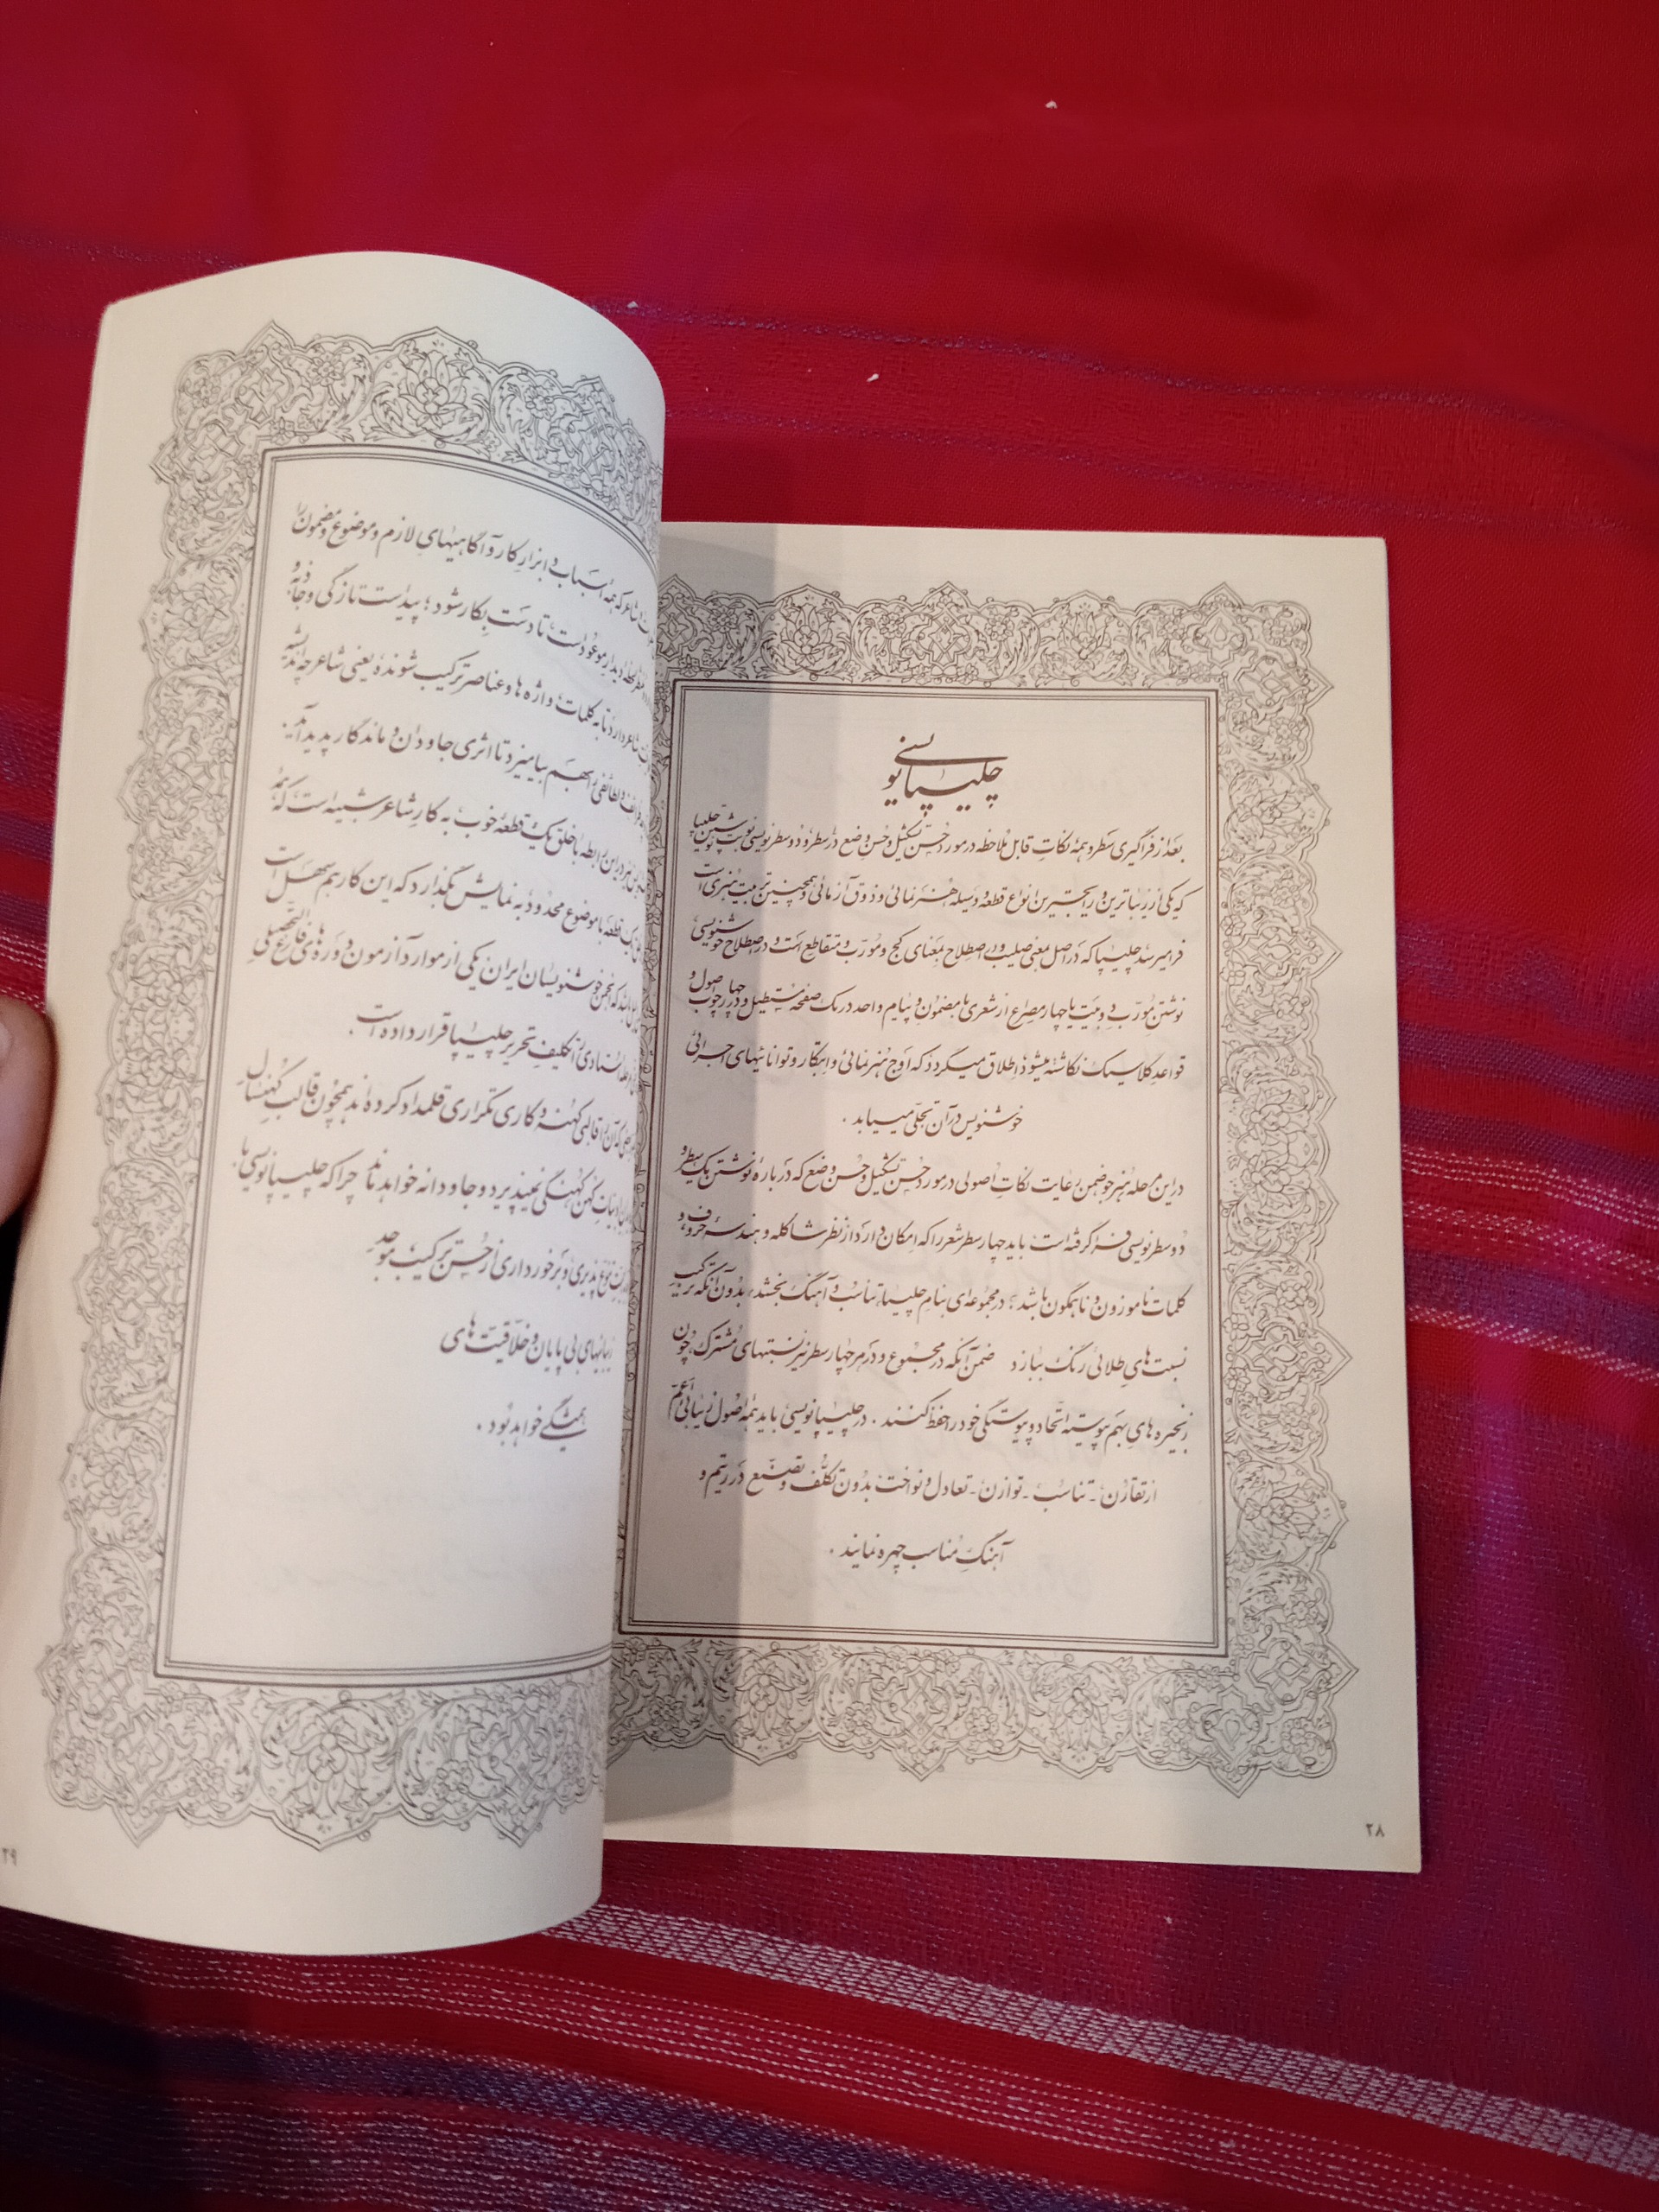 چلیپانویسی
بعد از فراگیری سطر و همهٔ نکاتِ قابل مُلاحظه در مورد حُسن تشکیل و حُسن وضع در سطر و دو سطرنویسی نوبت به نوشتن چلیپا
که یکی از زیباترین و رایجترین انواع قطعه و وسیله هُنرنمائی و ذوق‌آزمائی و همچنین تربیت هُنری است
فرا میرسد چلیپا که در اصل بمعنی صلیب و در اصطلاح بمعنای کج و مورّب و متقاطع است و در اصطلاح خوشنویسی،
نوشتن مورّب دو بیت یا چهار مصراع از شعری با مضمون و پیام واحد در یک صفحه مستطیل و در چهارچوب اصول و
قواعدِ کلاسیک نگاشته میشود اطلاق میگردد که اوج هُنرنمائی و ابتکار و توانائیهای اجرائی
خوشنویس در آن تجلّی مییابد .
در این مرحله هُنرجو ضمن رعایت نکات اصولی در مورد حُسن تشکیل و حُسن وضع که درباره نوشتن یک سطر و
دو سطرنویسی فرا گرفته است باید چهار سطر شعر را که امکان دارد از نظر شاکله و هندسهٔ حروف و
کلمات ناموزون و ناهمگون باشد؛ در مجموعه‌ای بنام چلیپا تناسب و آهنگ بخشد، بدون آنکه ترکیبِ
نسبت‌هایِ طلائی رنگ ببازد ضمن آنکه در مجموع و در هر چهار سطر نیز نسبتهای مُشترک، چون
زنجیره‌هایِ بهم پیوسته اتّحاد و پیوستگی خود را حفظ کنند . در چلیپانویسی باید همهٔ اصُول زیبائی اَعمّ
از تقارُن ـ تناسُب ـ توازن ـ تعادل و نواخت بدُون تکلُّف و تصنّع در ریتم و
آهنگ مُناسب چهره نمایند .
۲۸
شاعر که همه اسباب و ابزار کار و آگاهیهایِ لازم و موضوع و مضمون را
دیدار موعود است، تا دست بکار شود؛ پیداست تازگی و جاذبه و
شاعر دارد تا به کلمات، واژه‌ها و عناصر ترکیب شونده، یعنی شاعر چه اندیشه
و لطائفی را بهم بیامیزد تا اثری جاودان و ماندگار پدید آید.
هنر در این رابطه با خلق یک قطعهٔ خوب، به کارِ شاعر شبیه است، که همه
یک قطعه با موضوع محدود به نمایش بگذارد که این کار هم سهل است
که انجمن خوشنویسان ایران یکی از موارد آزمون دوره‌های فارغ‌التحصیلی
استادی را تکلیفِ تحریر چلیپا قرار داده است.
که آن را قالبی کُهنه و کاری تکراری قلمداد کرده‌اند همچون قالب کُهنسالِ
کُهن کُهنگی نمیپذیرد و جاودانه خواهد ماند چرا که چلیپانویسی با
تنوّع‌پذیری و برخورداری از حُسنِ ترکیب موجدِ
زیبائیهای بی‌پایان و خلّاقیّت‌های
همیشگی خواهد بُود .
۲۹